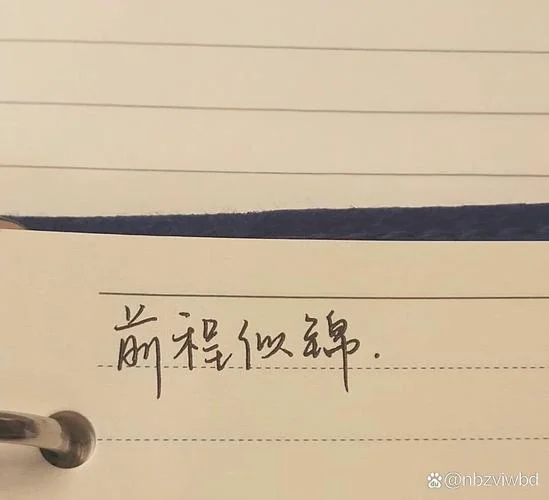 前程似锦.
@nbzviwbd